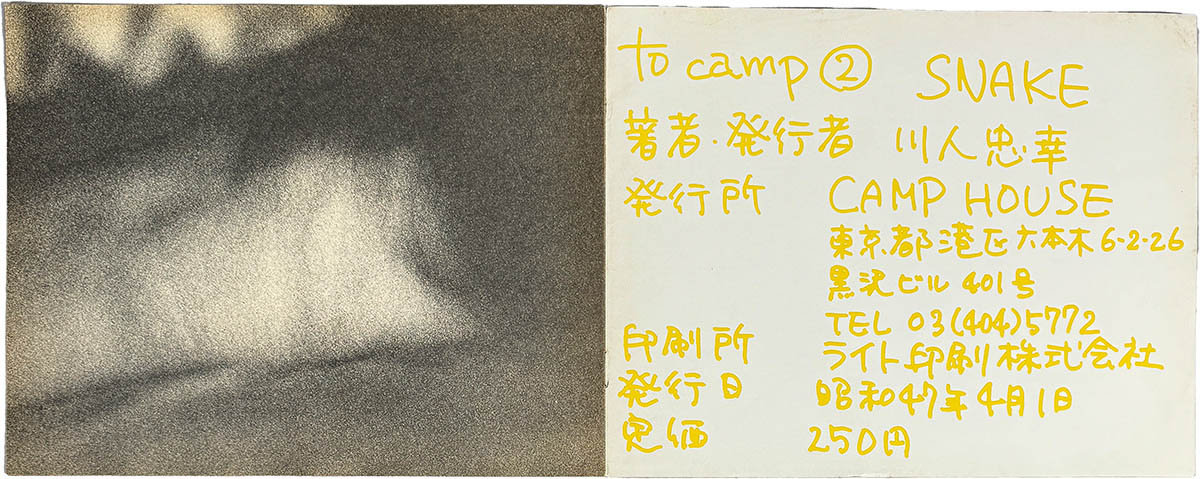 to camp ② SNAKE
著者・発行者 川人忠幸
発行所 CAMP HOUSE
東京都港区六本木6-2-26
黒沢ビル 401号
TEL 03(404)5772
印刷所 ライト印刷株式会社
発行日 昭和47年4月1日
定価 250円